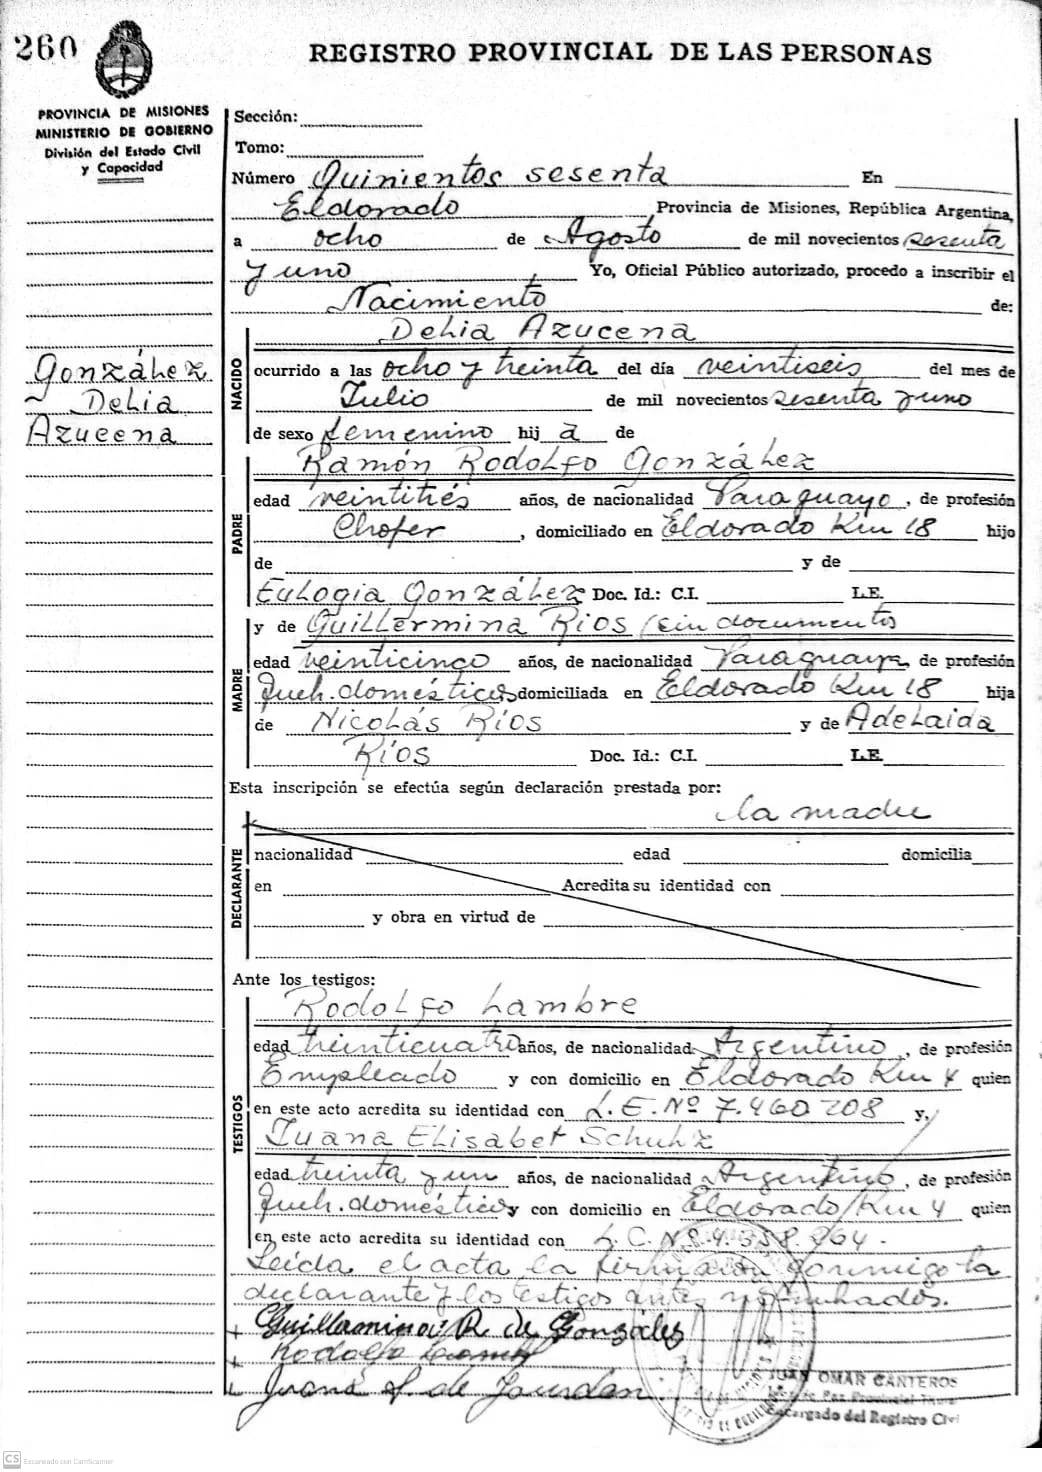 260
REGISTRO PROVINCIAL DE LAS PERSONAS
PROVINCIA DE MISIONES
MINISTERIO DE GOBIERNO
División del Estado Civil
y Capacidad
Sección:
Tomo:
Número Quinientos sesenta En
Eldorado Provincia de Misiones, República Argentina,
a ocho de Agosto de mil novecientos sesenta
y uno Yo, Oficial Público autorizado, procedo a inscribir el
Nacimiento de:
González
Delia
Azucena
NACIDO
Delia Azucena
ocurrido a las ocho y treinta del día veintiseis del mes de
Julio de mil novecientos sesenta y uno
de sexo femenino hij a de
Ramón Rodolfo González
PADRE
edad veintitrés años, de nacionalidad Paraguayo, de profesión
Chofer, domiciliado en Eldorado Km 18 hijo
de y de
Eulogia González Doc. Id.: C.I. L.E.
y de Guillermina Rios (sin documentos
MADRE
edad veinticinco años, de nacionalidad Paraguaya, de profesión
Queh. domésticos domiciliada en Eldorado Km 18 hija
de Nicolás Ríos y de Adelaida
Ríos Doc. Id.: C.I. L.E.
Esta inscripción se efectúa según declaración prestada por:
la madre
DECLARANTE
nacionalidad edad domicilia
en Acredita su identidad con
y obra en virtud de
Ante los testigos:
TESTIGOS
Rodolfo Lambre
edad treinticuatro años, de nacionalidad Argentino, de profesión
Empleado y con domicilio en Eldorado Km 4 quien
en este acto acredita su identidad con L.E. Nº 7.460.208 y,
Juana Elisabet Schulz
edad treinta y un años, de nacionalidad Argentino, de profesión
Queh. domésticos y con domicilio en Eldorado Km 4 quien
en este acto acredita su identidad con L.C. Nº 4.358.264.
Leída el acta la firmaron conmigo la
declarante y los testigos antes
Guillermina R. de Gonzales
Rodolfo
Juana S. de Jourdan
JUAN OMAR CANTEROS
Encargado del Registro Civil
CS Escaneado con CamScanner